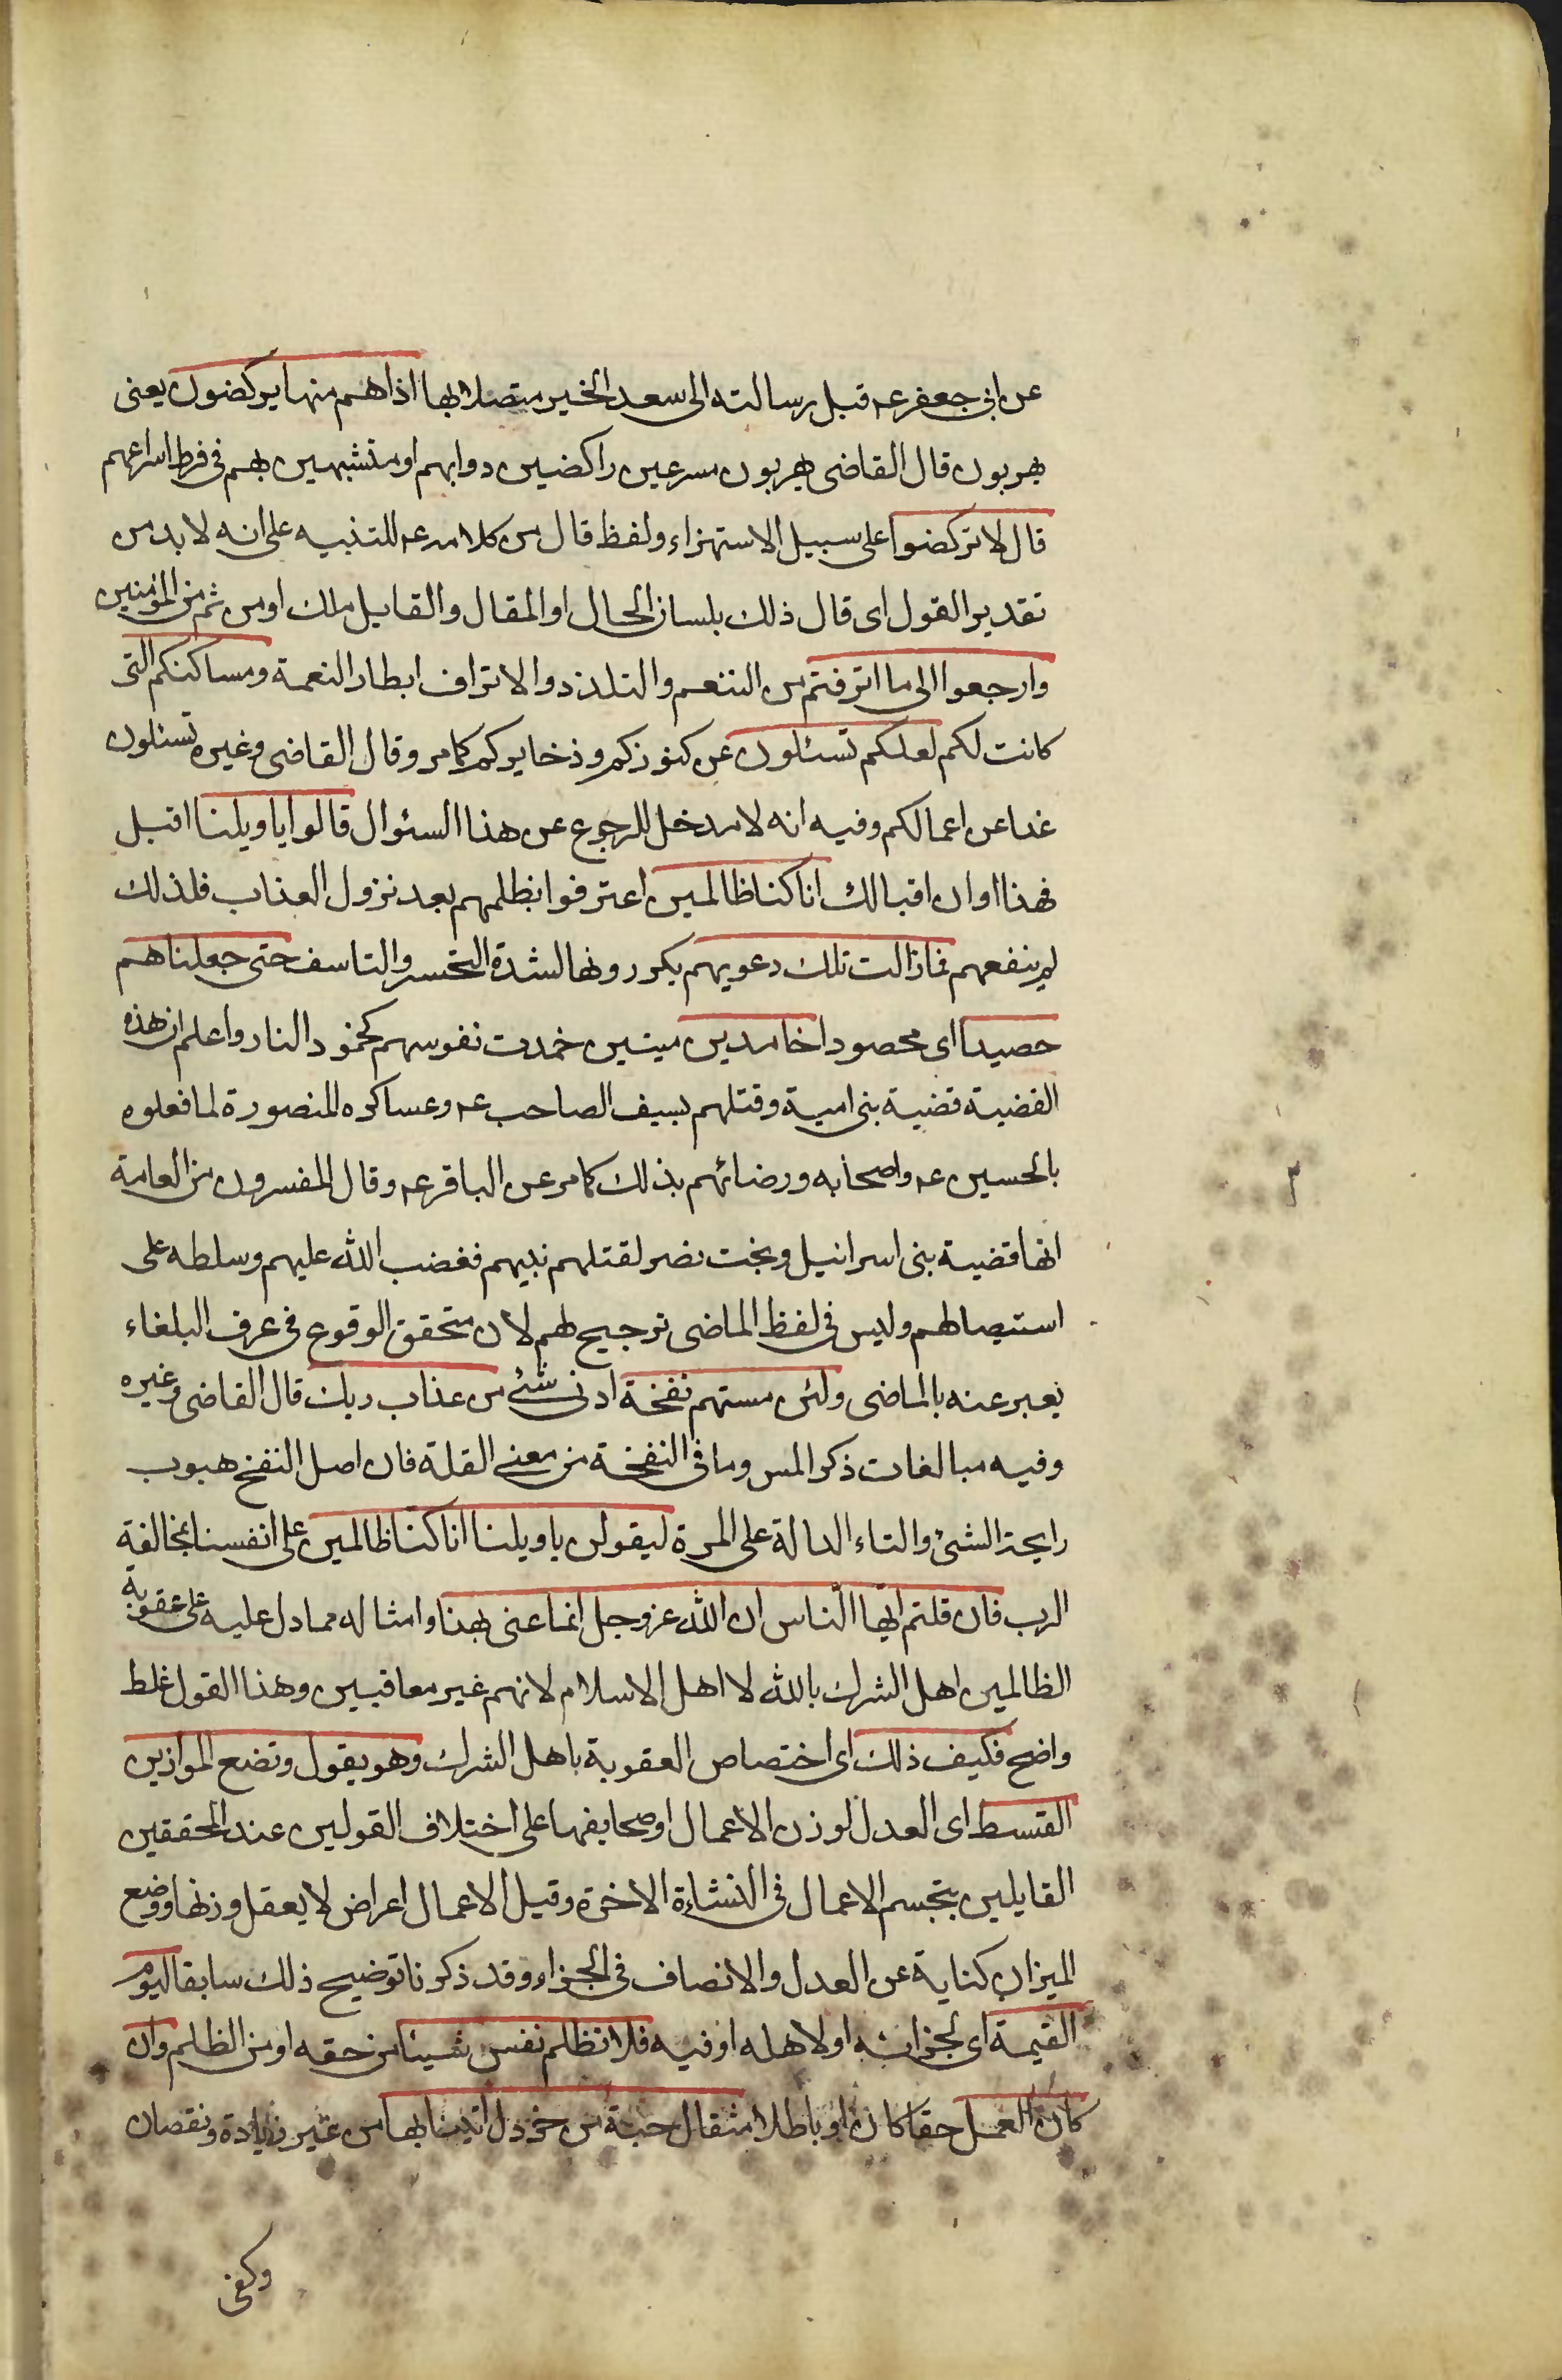 عن ابى جعفر عه قبل رسالته الى سعد الخير متصلا بها اذا هم منها يركضون يعنى
يهربون قال القاضى يهربون مسرعين راكضين دوابهم او متشبهين بهم فى فرط اسراعهم
قال لا تركضوا على سبيل الاستهزاء ولفظ قال من كلامه عه للتنبيه على انه لا بد من
تقدير القول اى قال ذلك بلسان الحال او المقال والقايل ملك او من ثم من المؤمنين
وارجعوا الى ما اترفتم من التنعم والتلذذ والاتراف ابطار النعمة ومساكنكم التى
كانت لكم لعلكم تسئلون عن كنوزكم وذخايركم كما مر وقال القاضى وغيره تسئلون
غدا عن اعمالكم وفيه انه لا مدخل للرجوع عن هذا السئوال قالوا يا ويلنا اقبل
فهذا اوان اقبالك انا كنا ظالمين اعترفوا بظلمهم بعد نزول العذاب فلذلك
لم ينفعهم فما زالت تلك دعويهم يكررونها لشدة التحسر والتاسف حتى جعلناهم
حصيدا اى محصودا خامدين ميتين خمدت نفوسهم كخمود النار واعلم ان هذه
القضية قضية بنى امية وقتلهم بسيف الصاحب عه وعساكره المنصورة لما فعلوه
بالحسين عه واصحابه ورضائهم بذلك كما مر عن الباقر عه وقال المفسرون من العامة
انها قضية بنى اسرائيل وبخت نصر لقتلهم نبيهم فغضب الله عليهم وسلطه على
استيصالهم وليس فى لفظ الماضى ترجيح لهم لان متحقق الوقوع فى عرف البلغاء
يعبر عنه بالماضى ولئن مستهم نفخة ادنى شئ من عذاب ربك قال القاضى وغيره
وفيه مبالغات ذكر المس وما فى النفخة من معنى القلة فان اصل النفخ هبوب
رايحة الشئ والتاء الدالة على المرة ليقولن يا ويلنا انا كنا ظالمين على انفسنا بمخالفة
الرب فان قلتم ايها الناس ان الله عز وجل انما عنى بهذا وامثاله مما دل عليه على عقوبة
الظالمين اهل الشرك بالله لا اهل الاسلام لانهم غير معاقبين وهذا القول غلط
واضح فكيف ذلك اى اختصاص العقوبة باهل الشرك وهو يقول ونضع الموازين
القسط اى العدل لوزن الاعمال او صحايفها على اختلاف القولين عند المحققين
القايلين بتجسم الاعمال فى النشاءة الاخرة وقيل الاعمال اعراض لا يعقل وزنها ووضع
الميزان كناية عن العدل والانصاف فى الجزاء وقد ذكرنا توضيح ذلك سابقا ليوم
القيمة اى لجزائه او لاهله او فيه فلا تظلم نفس شيئا من حقه او من الظلم وان
كان العمل حقا كان او باطلا مثقال حبة من خردل اتينا بها من غير زيادة ونقصان
وكفى